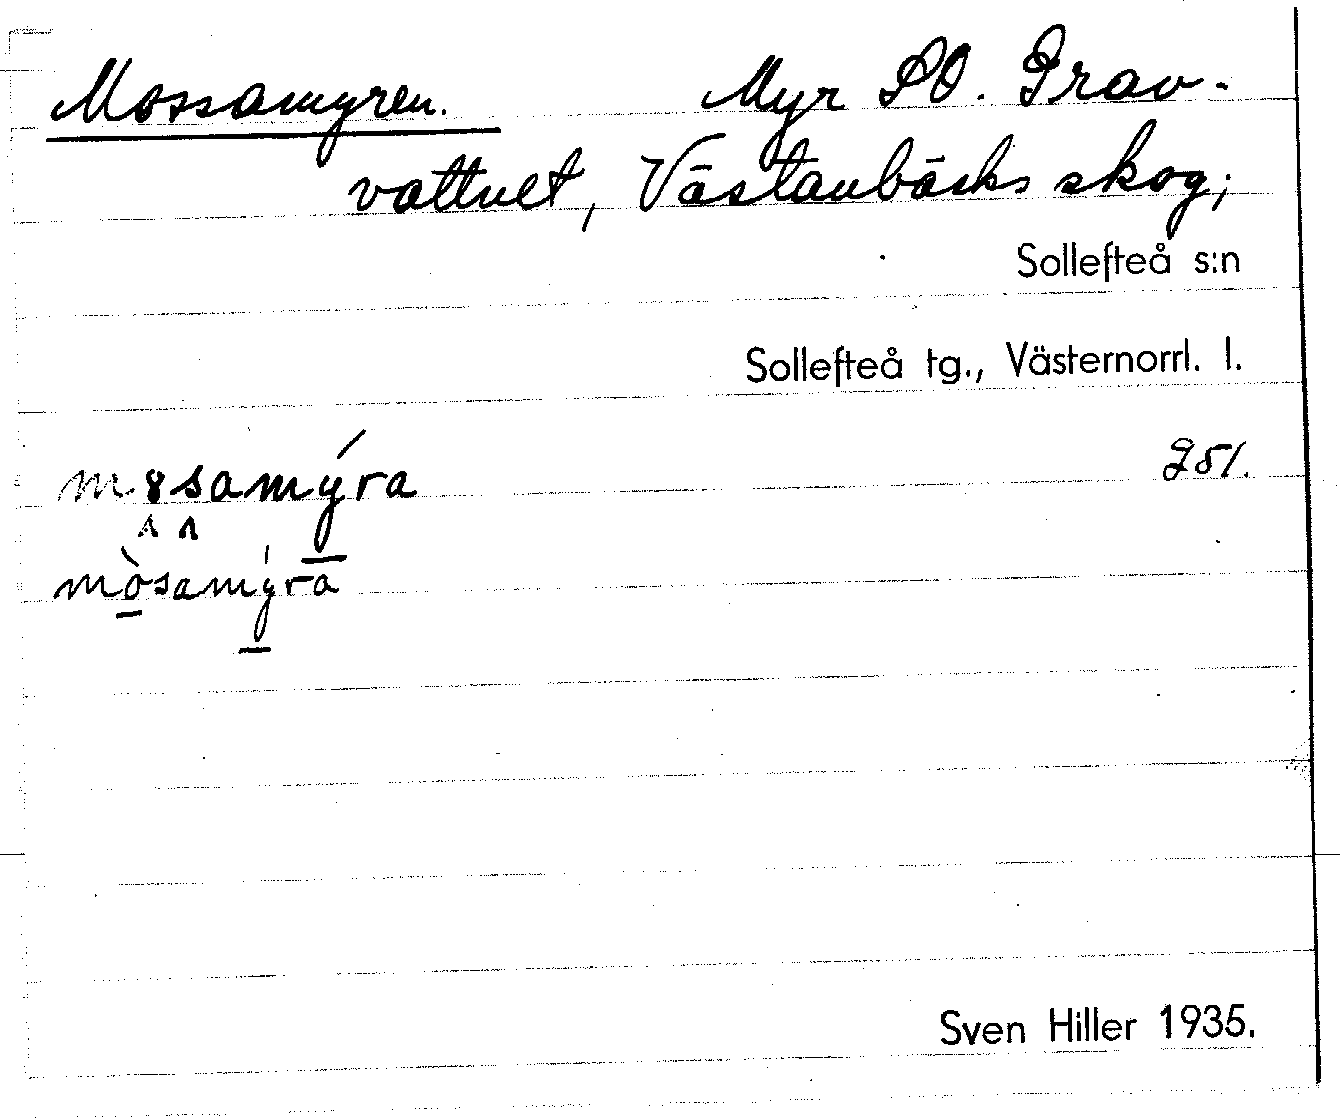 Mossamyren. Myr SO. Grav-
vattnet, Västanbäcks skog;
Sollefteå s:n
Sollefteå tg., Västernorrl. l.
251.
mòsamýra
Sven Hiller 1935.